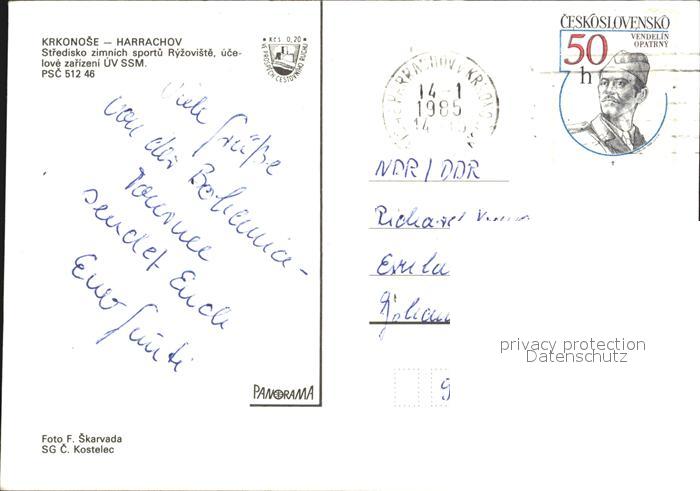 KRKONOŠE — HARRACHOV
Středisko zimních sportů Rýžoviště, úče-
lové zařízení ÚV SSM.
PSČ 512 46
Kčs 0,20
VE PROSPĚCH CESTOVNÍHO RUCHU
Viele Grüße
von der Bohemia-
Tournee
sendet Euch
Euer Günti
PANORAMA
Foto F. Škarvada
SG Č. Kostelec
HARRACHOV V KRKONO
14-1
1985
14
ČESKOSLOVENSKO
50
h
VENDELÍN
OPATRNÝ
NDR / DDR
Richard
privacy protection
Datenschutz
9